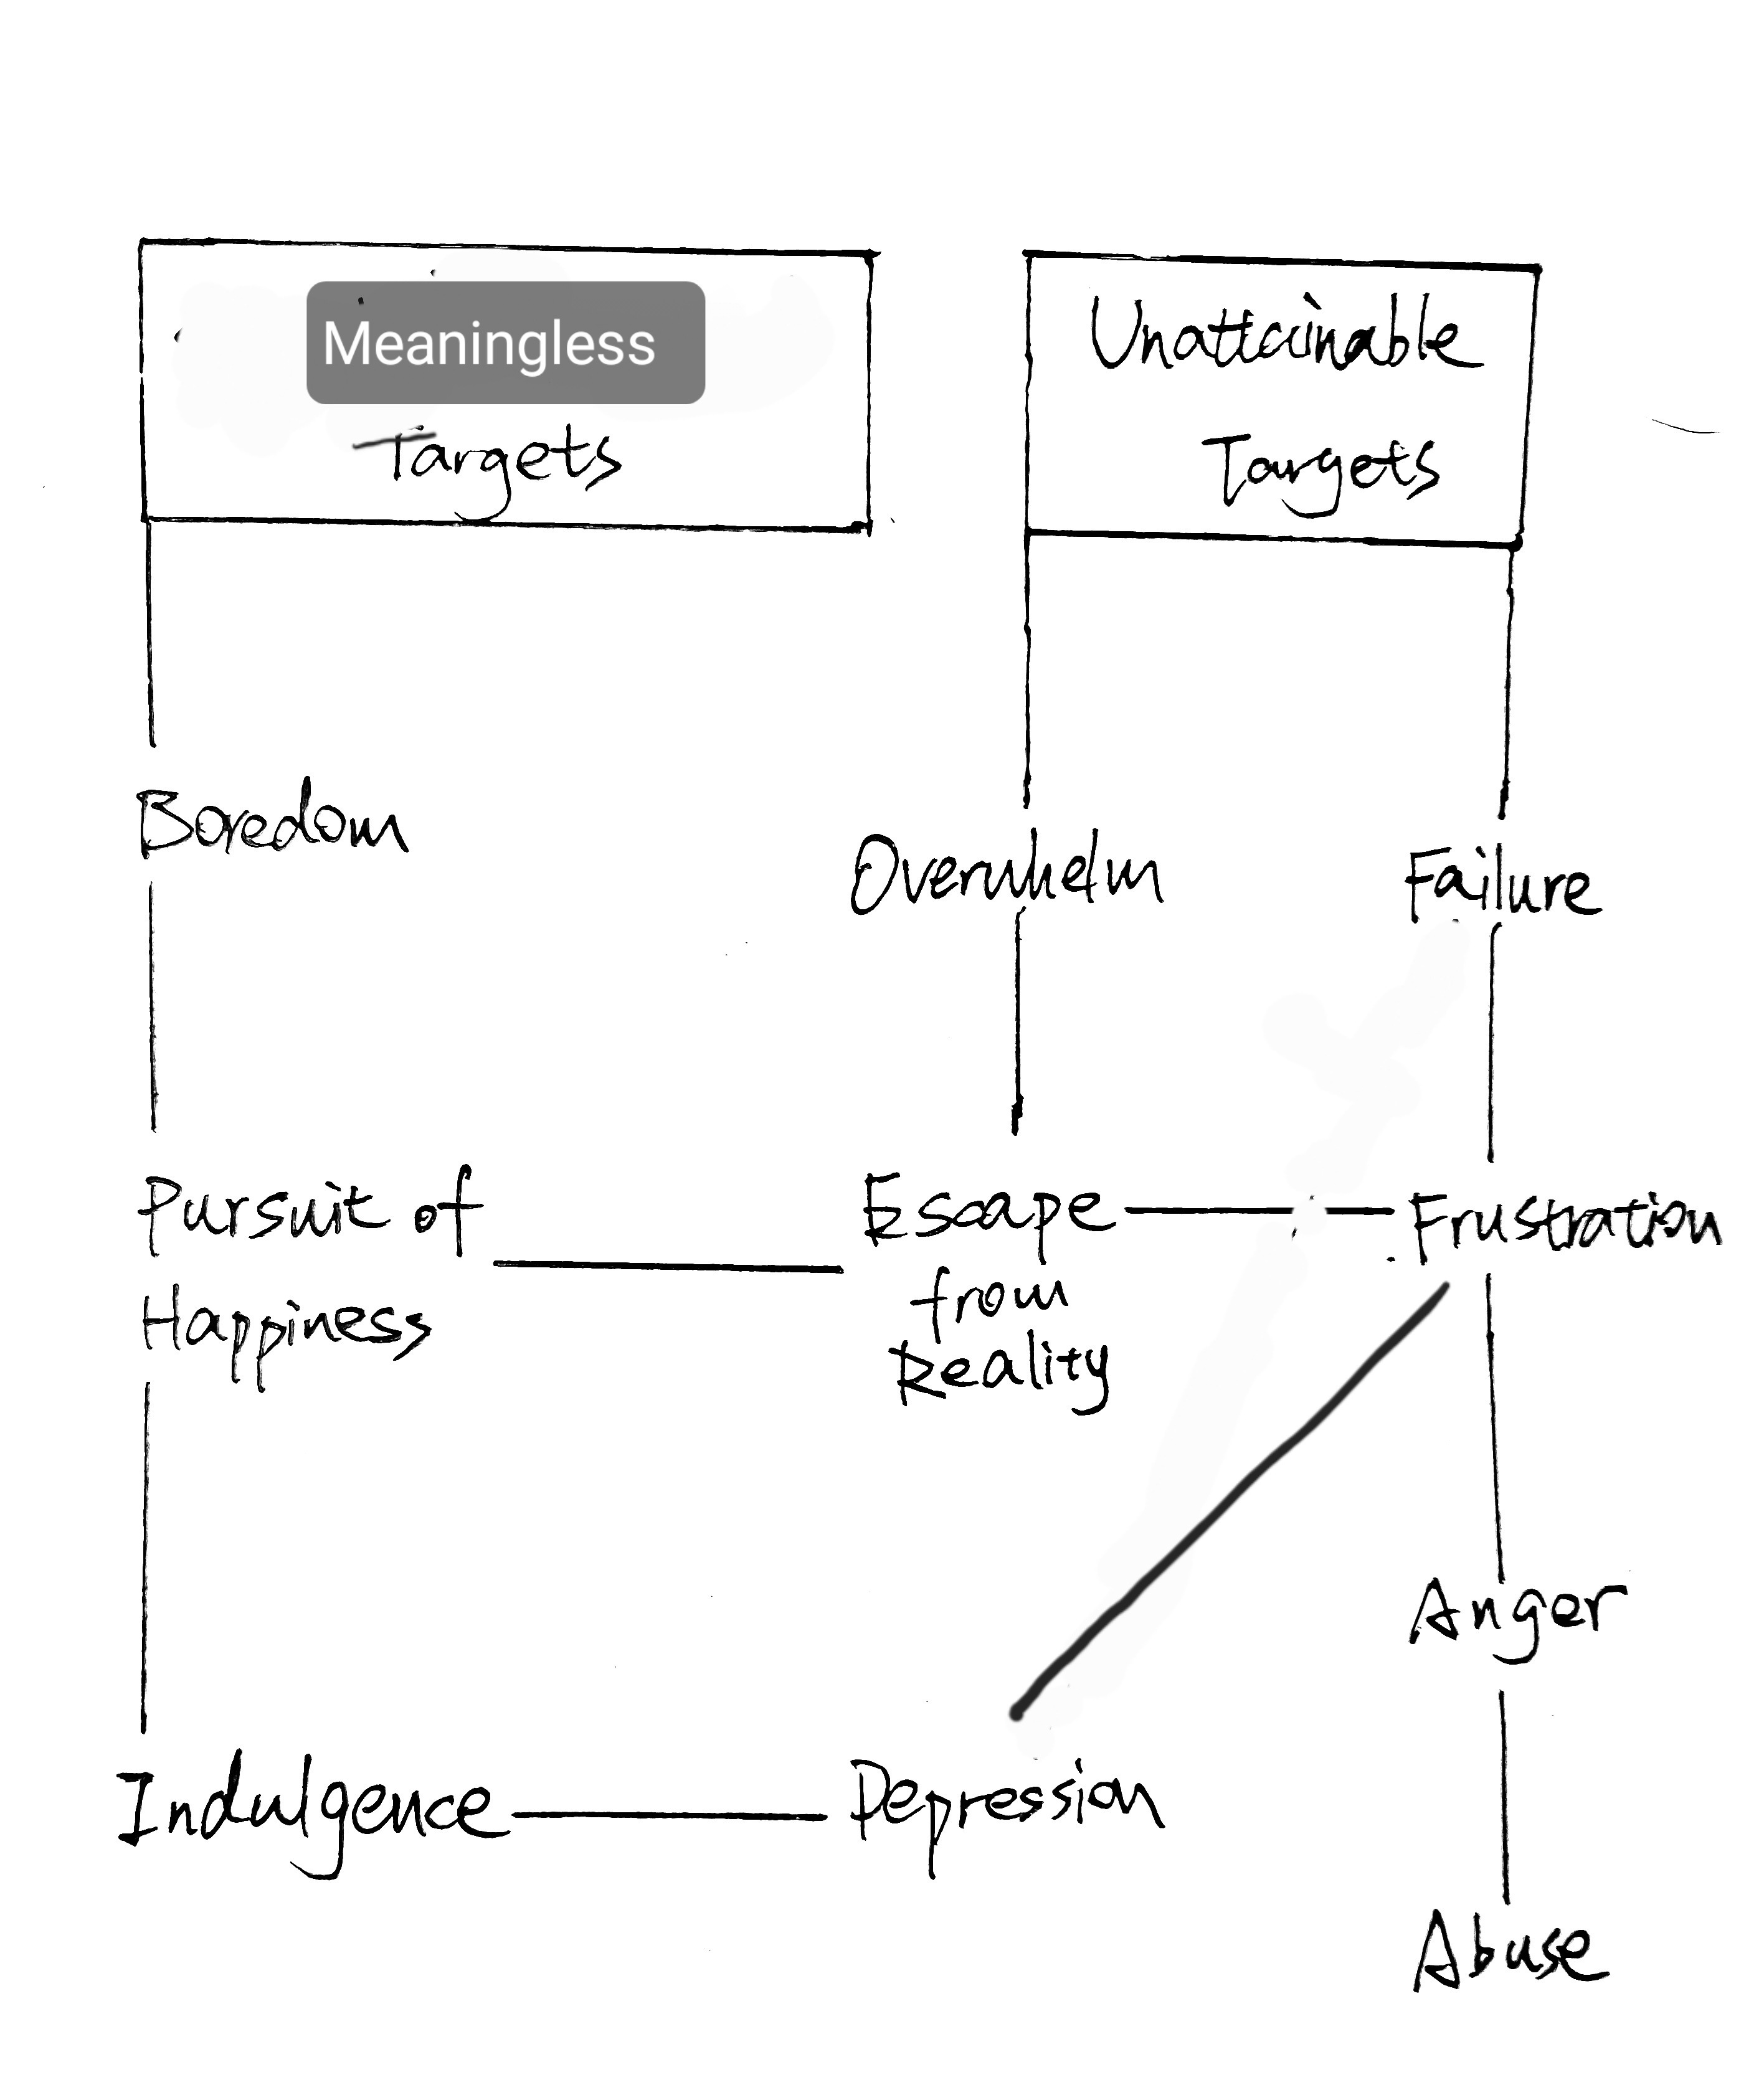 Meaningless
Targets
Unattainable
Targets
Boredom
Overwhelm
Failure
Pursuit of
Happiness
Escape
from
Reality
Frustration
Anger
Indulgence
Depression
Abuse